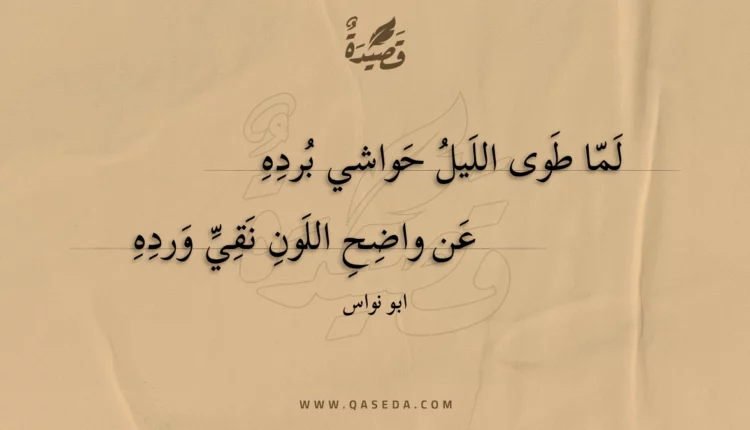 قَصِيْدَةٌ
لَمّا طَوى اللَيلُ حَواشي بُردِهِ
عَن واضِحِ اللَونِ نَقِيِّ وَردِهِ
ابو نواس
WWW.QASEDA.COM